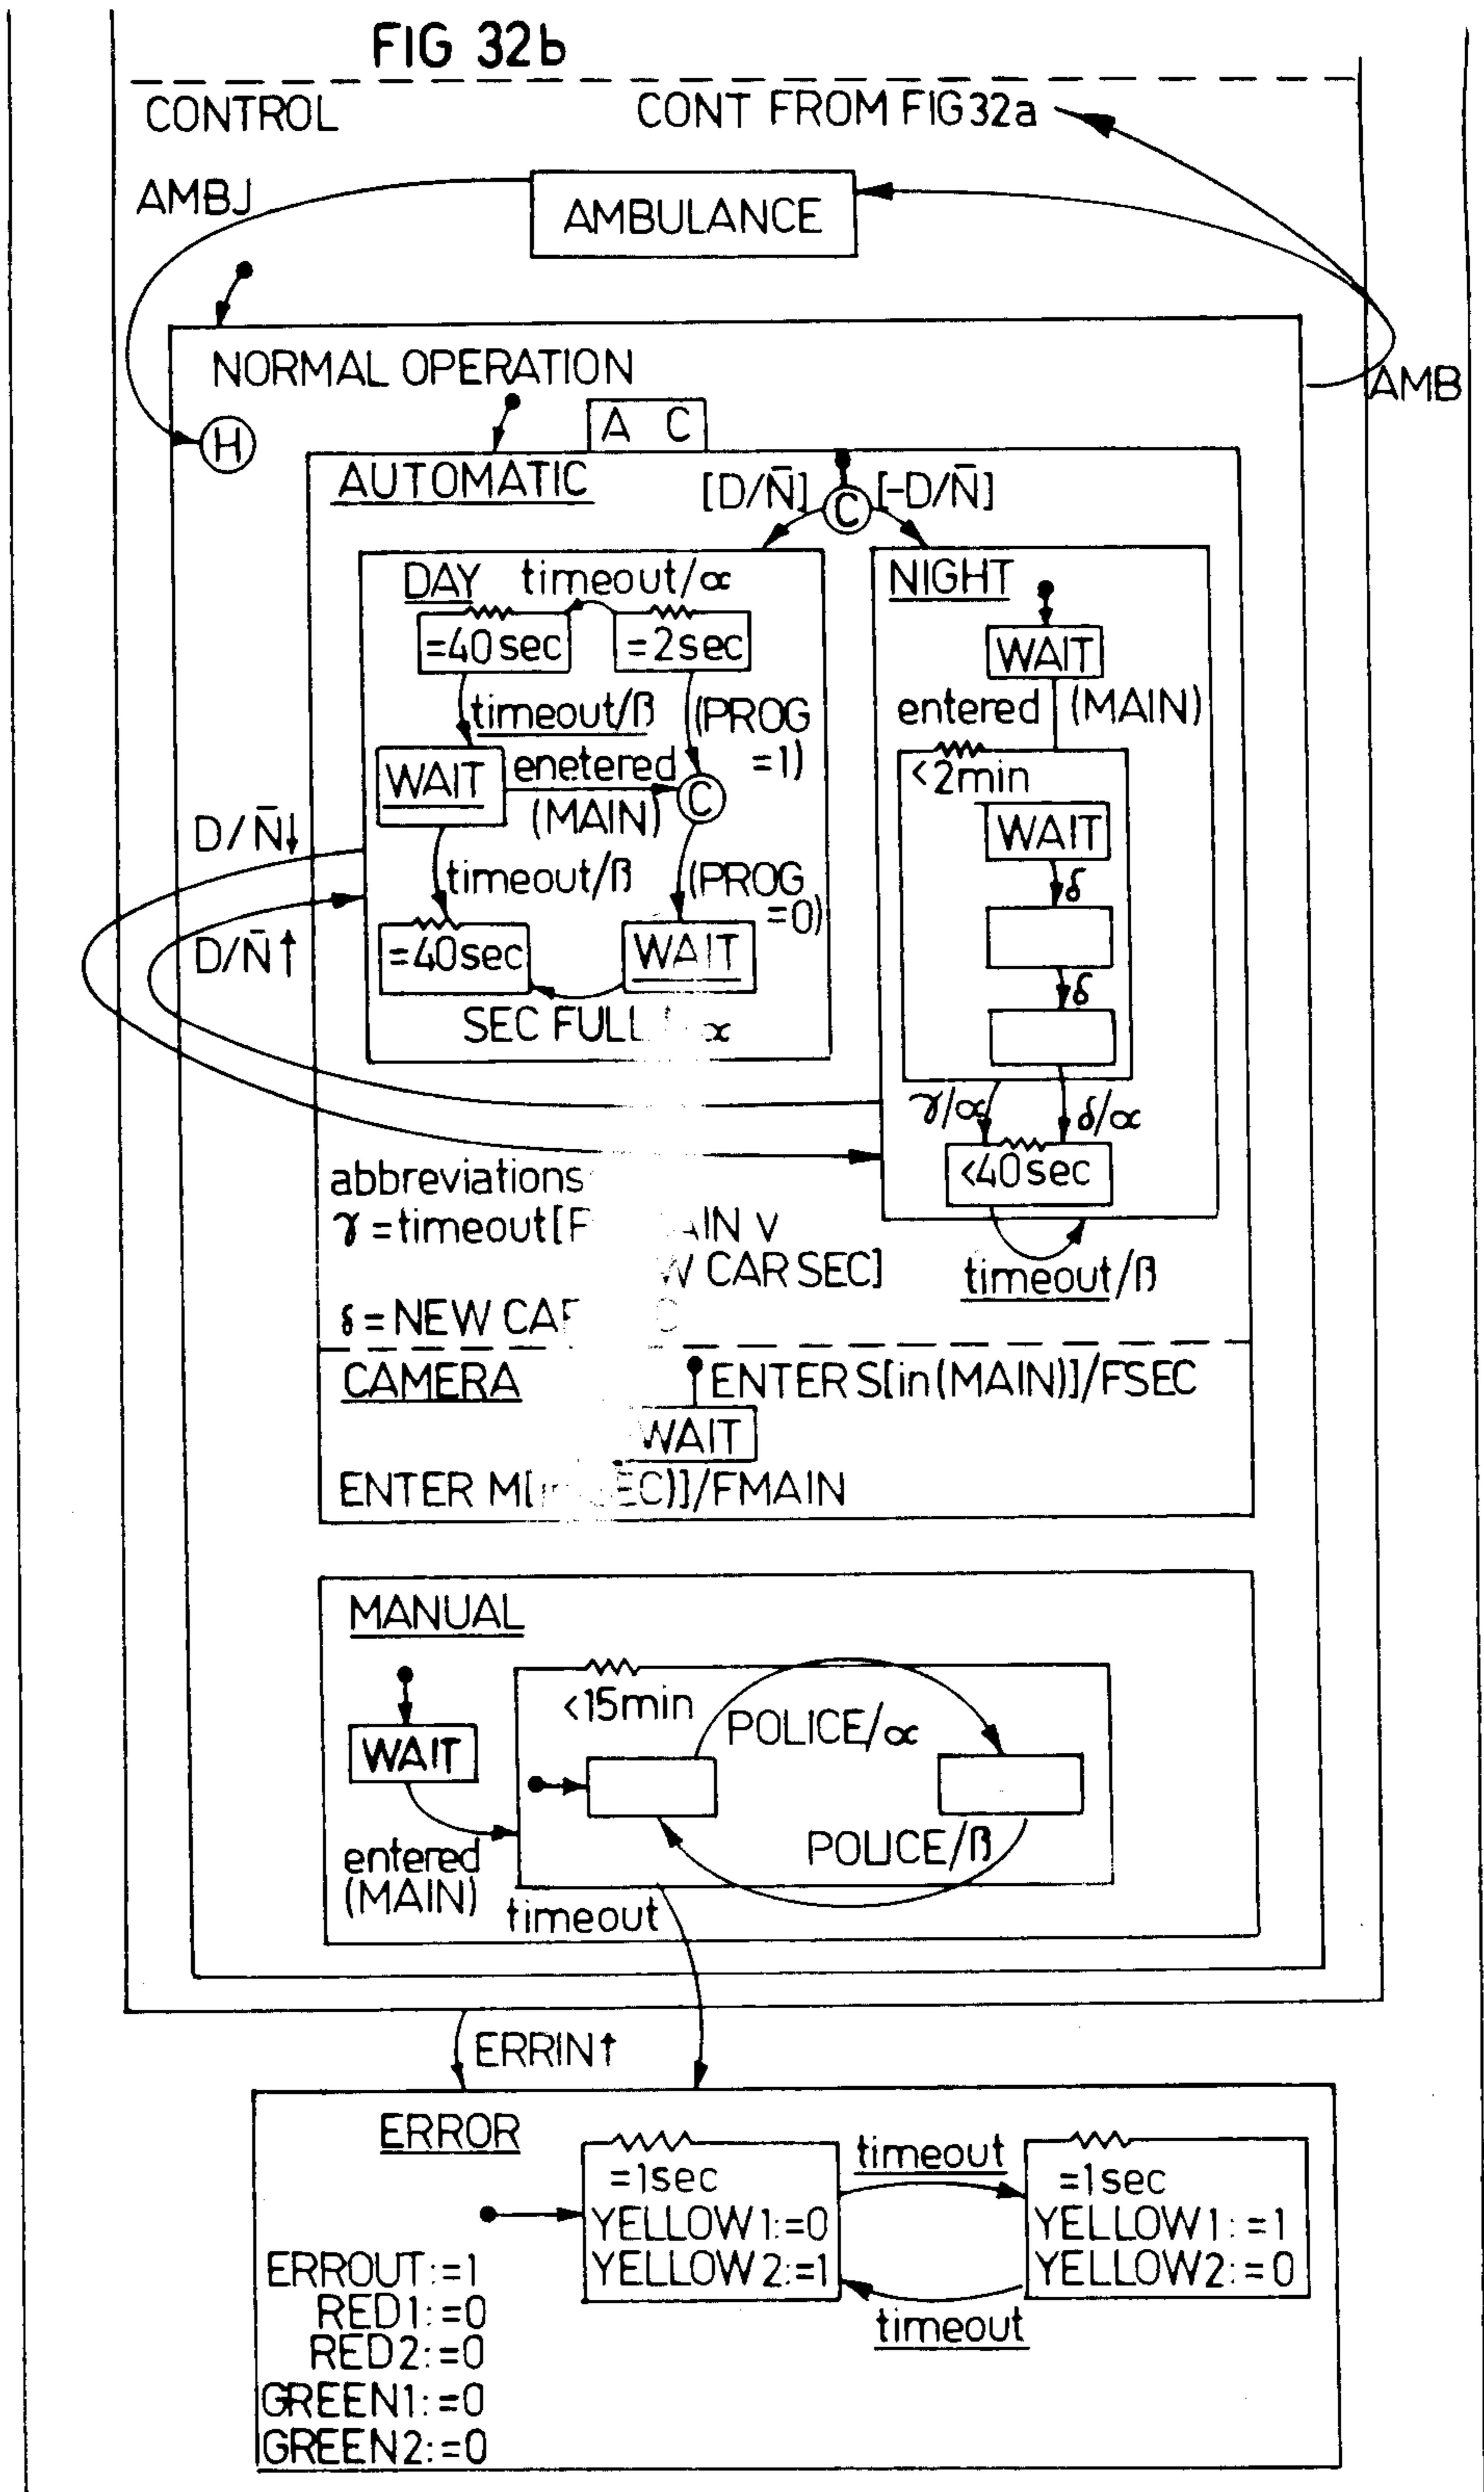 FIG 32b
CONTROL
CONT FROM FIG32a
AMBJ
AMBULANCE
AMB
NORMAL OPERATION
H
A C
AUTOMATIC
[D/N̄]
C
[-D/N̄]
DAY
timeout/∝
=40sec
=2sec
timeout/β
(PROG
=1)
WAIT
enetered
(MAIN)
C
timeout/β
(PROG
=0)
=40sec
WAIT
SEC FULL
∝
NIGHT
WAIT
entered (MAIN)
<2min
WAIT
δ
δ
γ/∝
δ/∝
<40sec
timeout/β
D/N̄↓
D/N̄↑
abbreviations
γ=timeout[
V
CARSEC]
δ=NEW
CAMERA
ENTER S[in(MAIN)]/FSEC
WAIT
ENTER M[
)]/FMAIN
MANUAL
WAIT
entered
(MAIN)
<15min
POLICE/∝
POLICE/β
timeout
ERRIN↑
ERROR
=1sec
YELLOW1:=0
YELLOW2:=1
timeout
=1sec
YELLOW1:=1
YELLOW2:=0
timeout
ERROUT:=1
RED1:=0
RED2:=0
GREEN1:=0
GREEN2:=0